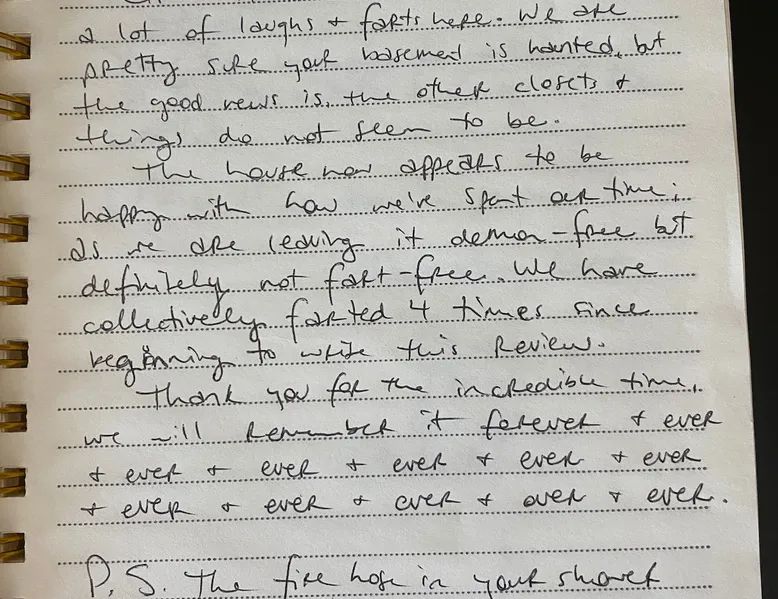 a lot of laughs + farts here. We are
pretty sure your basement is haunted, but
the good news is, the other closets +
things do not seem to be.
The house now appears to be
happy with how we've spent our time;
as we are leaving it demon-free but
definitely not fart-free. We have
collectively farted 4 times since
beginning to write this review.
Thank you for the incredible time,
we will remember it forever + ever
+ ever + ever + ever + ever + ever
+ ever + ever + ever + over + ever.
P.S. The fire hose in your shower